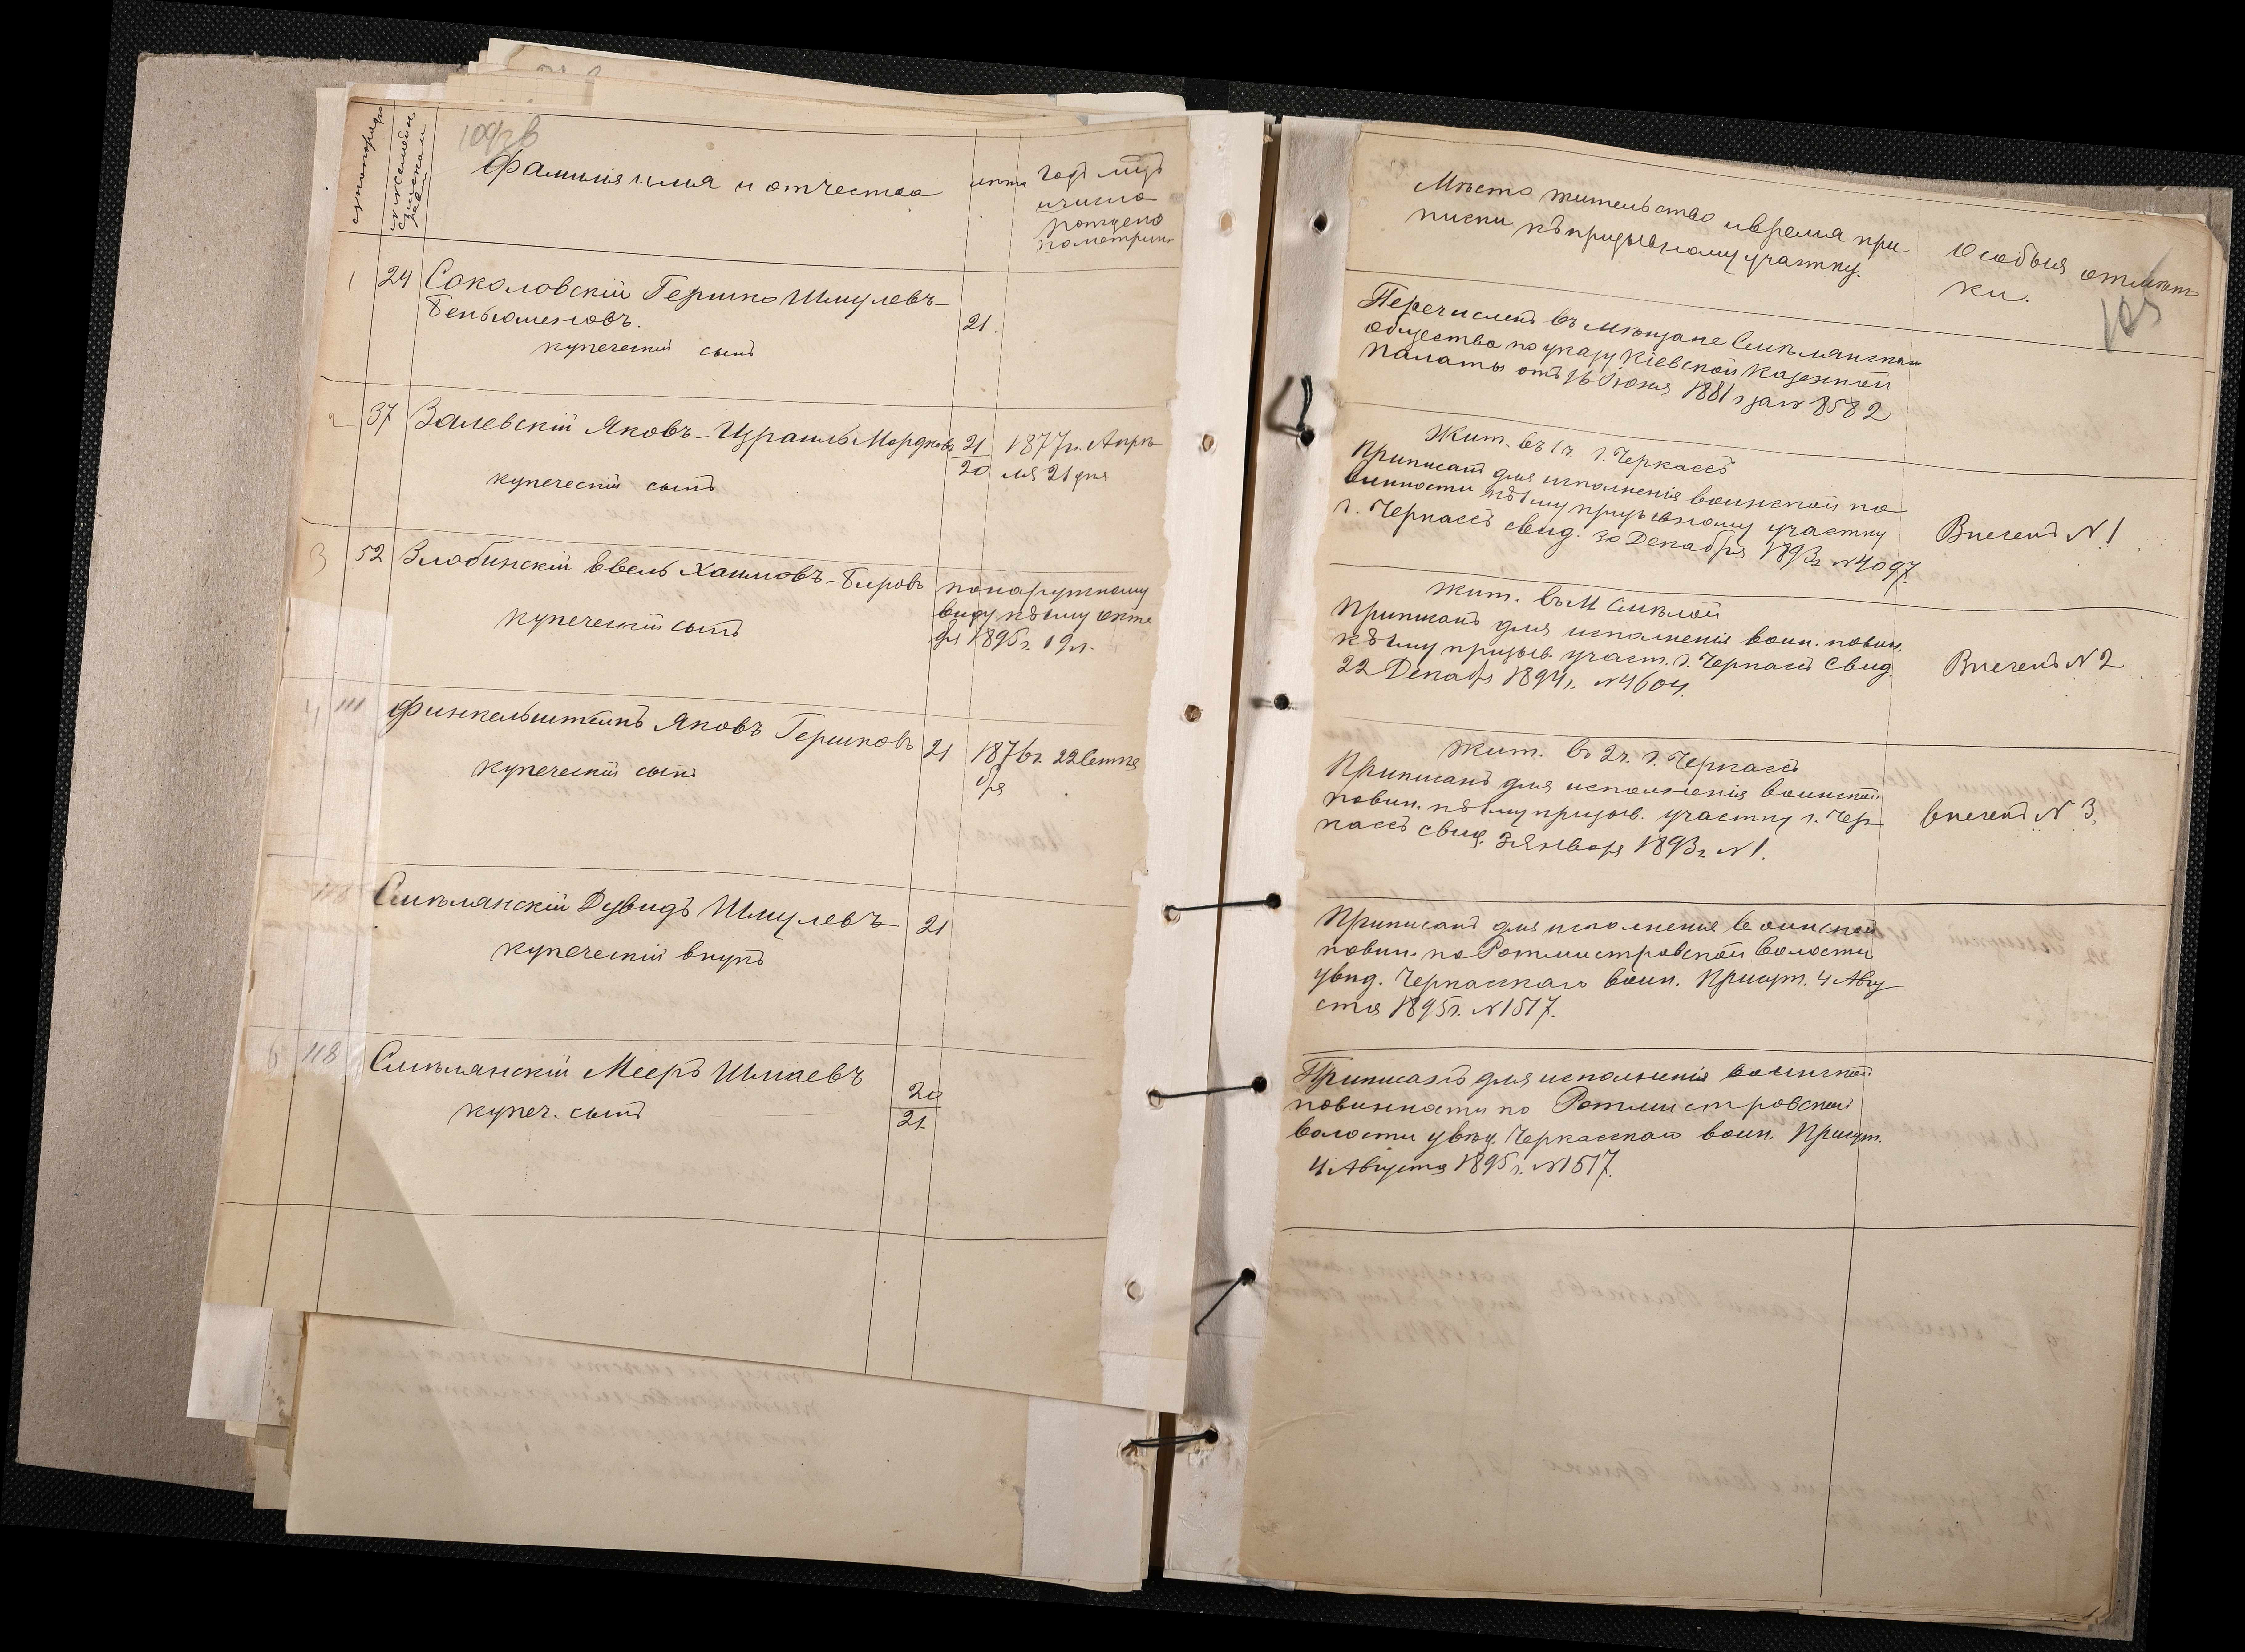 № по порядк
№ посемейн.
списком
Фамилія имя и отчество
лѣта
Годъ мцъ
и число
рожденія
по метрики
1 24 Соколовскій Гершко Шмулевъ-
Беньоменовъ.
купеческій сынъ
21.
2 37 Залевскій Яковъ-Израиль Мордковъ
купеческій сынъ
21
20
1877 г. Апрѣ
ля 21 дня
3 52 Злобинскій Евель Хаимовъ-Беровъ
купеческій сынъ
по наружному
виду къ 1му октя
бря 1895 г. 19 л.
4 111 Финкельштейнъ Яковъ Гершковъ
купеческій сынъ
21
1876 г. 22 Сентя
бря
118 Смѣлянскій Дувидъ Шмулевъ
купеческій внукъ
21
6 118 Смѣлянскій Мееръ Шмаевъ
купеч. сынъ
20
21.
Мѣсто жительство и время при
писки къ призывному участку.
Особыя отмѣт
ки.
105
Перечисленъ въ мѣщане Смѣлянскаго
общества по указу Кіевской Казенной
Палаты отъ 16 Іюня 1881 г за № 8582
Жит. въ 1 ч. г. Черкассъ
Приписанъ для исполненія воинской по
винности къ 1му призывному участку
г. Черкассъ свид. 30 Декабря 1893 г. № 4097.
Внесенъ № 1
Жит. въ м Смѣлой
Приписанъ для исполненія воин. повин.
къ 1му призыв. участ. г. Черкассъ Свид.
22 Декабр 1894 г. № 4604.
Внесенъ № 2
Жит. въ 2 ч. г. Черкассъ
Приписанъ для исполненія воинской
повин. къ 1му призыв. участку г. Чер
кассъ свид. 3 Января 1893 г. № 1.
внесенъ № 3.
Приписанъ для исполненія воинской
повин. по Ротмистровской волости
увѣд. Черкасскаго воин. Присут. 4 Авгу
ста 1895 г. № 1517.
Приписанъ для исполненія воинской
повинности по Ротмистровской
волости увѣд. Черкасскаго воин. Присут.
4 Августа 1895 г. № 1517.